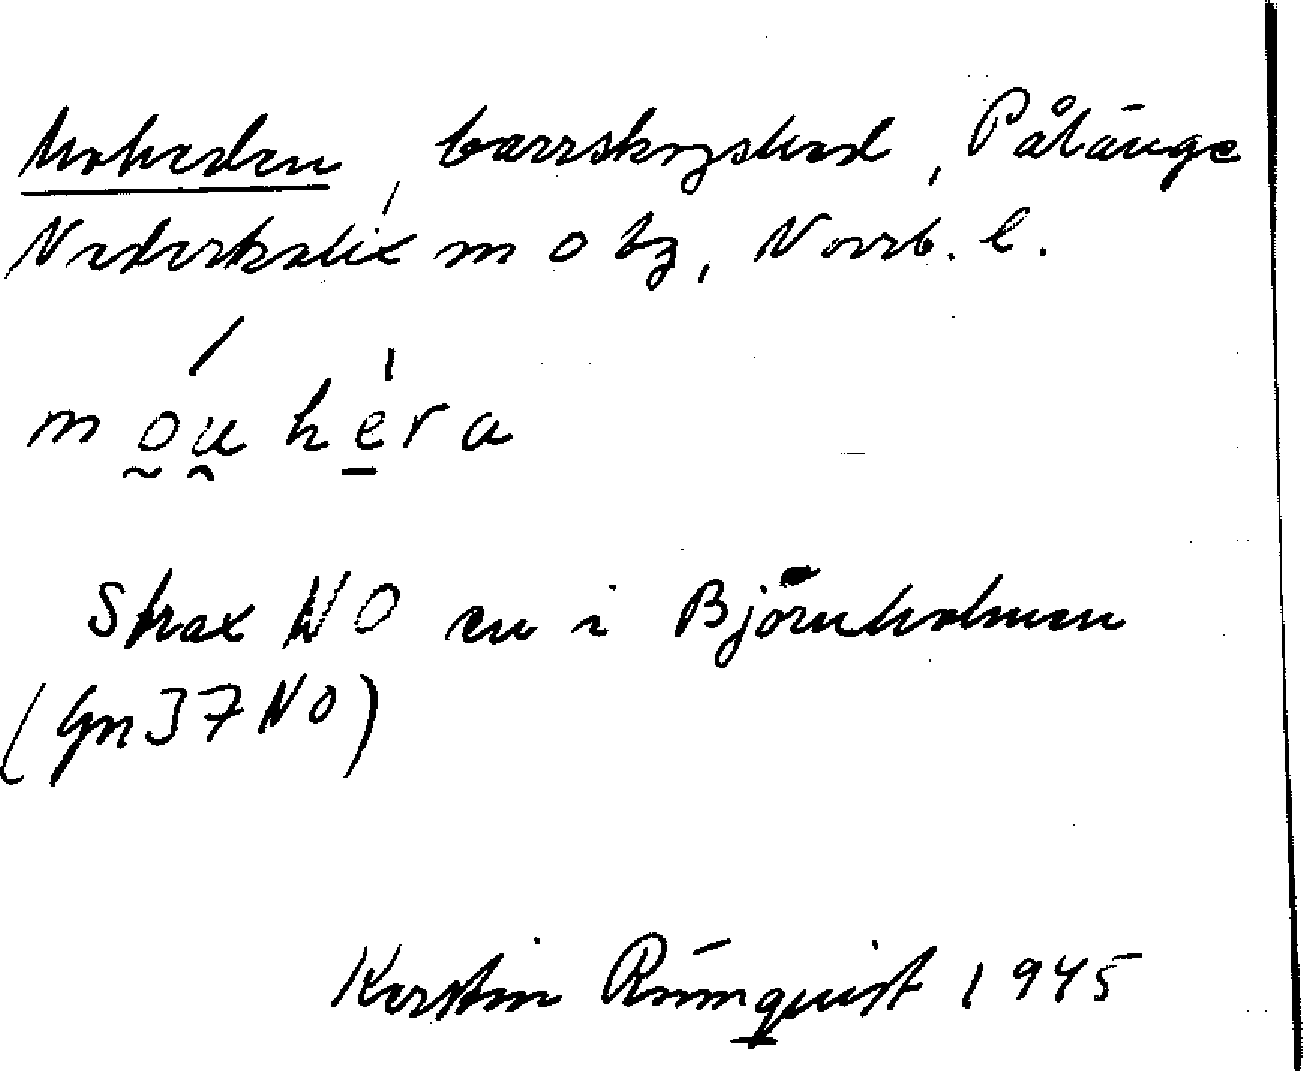 Moheden, barrskogshed, Pålänge
Nederkalix sn o tg, Norrb. l.
mou hera
Strax NO en i Björnholmen
(Gn37NO)
Kerstin Rönnquist 1945